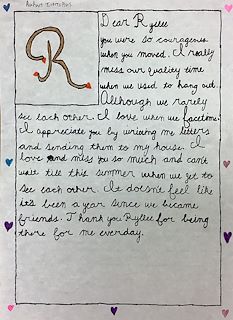 R
Dear Rylee
you were so courageous
when you moved. I really
miss our quality time
when we used to hang out.
Although we rarely
see each other. I love when we facetime.
I appreciate you by writing me letters
and sending them to my house. I
love and miss you so much and can't
wait till this summer when we get to
see each other. It doesn't feel like
it's been a year since we became
friends. Thank you Rylee for being
there for me everday.